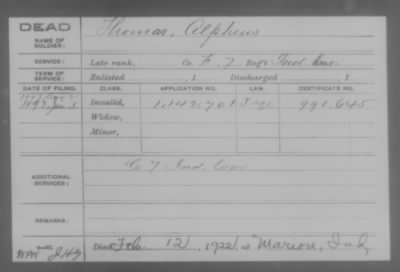 DEAD
NAME OF SOLDIER: Thomas, Alpheus
SERVICE: Late rank, Co. F, 7 Reg't Ind. Cav.
TERM OF SERVICE: Enlisted , 1 Discharged , 1
DATE OF FILING. CLASS. APPLICATION NO. LAW. CERTIFICATE NO.
Invalid, 1.142.701 991.645
Widow,
Minor,
ADDITIONAL SERVICES: C 7 Ind. Cav
REMARKS:
Died Feb. 12, 1922, at Marion, Ind